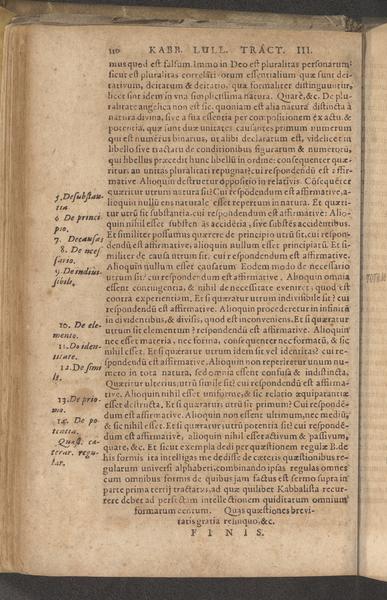 110 KABB. LULL. TRACT. III.
mus quod est falsum. Immo in Deo est pluralitas personarum:
sicut est pluralitas correlatiuorum essentialium quæ sunt dei-
tatiuum, deitatum & deitatio, quæ formaliter distinguuntur,
licet sint idem in vna simplicissima natura. Quarè, &c. De plu-
ralitate angelica non est sic, quoniam est alia natura distincta à
natura diuina, siue à sua essentia per compositionem ex actu, &
potentia, quæ sunt duæ unitates causantes primum numerum
qui est numerus binarius, ut alibi declaratum est, videlicet in
libello siue tractatu de conditionibus figurarum & numerorū,
qui libellus præcedit hunc libellū in ordine: consequenter quæ-
ritur, an unitas pluralitati repugnat? cui respondendū est affir-
matiue. Alioquin destrueretur oppositio in relatiuis. Cōsequēter
quæritur utrum natura sit? Cui respōdendum est affirmatiue, a-
lioquin nullū ens naturale esset repertum in natura. Et quæri-
5. De substan-
tia
tur utrū sit substantia. cui respondendum est affirmatiue: Alio-
quin nihil esset substēs accidētibus.
6 De princi-
pio.
Et similiter possumus quærere de principio utrū sit. cui respon-
dendū est affirmatiue, alioquin nullum esset principiatū. Et si-
7. De causa
militer de causa utrum sit. cui respondendum est affirmatiue.
8. De neces-
sario.
Alioquin nullum esset causatum. Eodem modo de necessario
utrum sit? cui respondendum est affirmatiue. Alioquin omnia
9. De indiui-
sibile.
essent contingentia, & nihil de necessitate eueniret: quod est
contra experientiam. Et si quæratur utrum indiuisibile sit? cui
respondendum est affirmatiue. Alioquin procederetur in infinitū
in diuidentibus, & diuisis, quod est inconueniens. Et si quæratur
10. De ele-
mento.
utrum sit elementum? respondendū est affirmatiue. Alioquin
nec esset materia, nec forma, consequenter nec formatū, & sic
11. De iden-
titate.
nihil esset. Et si quæratur utrum idem sit vel identitas? cui re-
spondendū est affirmatiue. Alioquin non reperiretur unum nu-
12. De simi
le.
mero in tota natura, sed omnia essent confusa & indistincta.
Quæritur ulterius, utrū simile sit? cui respondendū est affirma-
tiue. Alioquin nihil esset uniforme, & sic relatio æquiparantiæ
13. De prio-
mo.
esset destructa. Et si quæratur: utrū sit primum? Cui responden-
dum est affirmatiue. Alioquin non essent ultimum, nec mediū,
14. De po-
tentia.
& sic nihil esset. Et si quæratur: utrū potentia sit? cui responden-
dum est affirmatiue, alioquin nihil esset actiuum & passiuum,
Quæst. ca-
terar. regu-
lar.
quare, &c. Et sicut exempla dedi per quæstionem regulæ B. de
his formis ita intelligas me dedisse de cæteris quæstionibus re-
gularum universi alphabeti, combinando ipsas regulas omnes
cum omnibus formis de quibus jam factus est sermo supra in
parte prima tertij tractatus, ad quæ quilibet Kabbalista recur-
rere debet ad perfectam intellectionem quiditatum omnium
formarum centum. Quas quæstiones brevi-
tatis gratia relinquo, &c.
F I N I S.